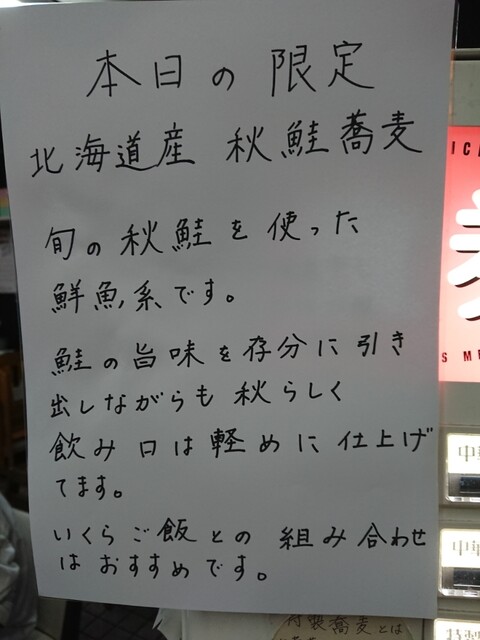 本日の限定
北海道産 秋鮭蕎麦
旬の秋鮭を使った
鮮魚系です。
鮭の旨味を存分に引き
出しながらも秋らしく
飲み口は軽めに仕上げ
てます。
いくらご飯との組み合わせ
はおすすめです。
特製蕎麦とは
中華
中華
特製